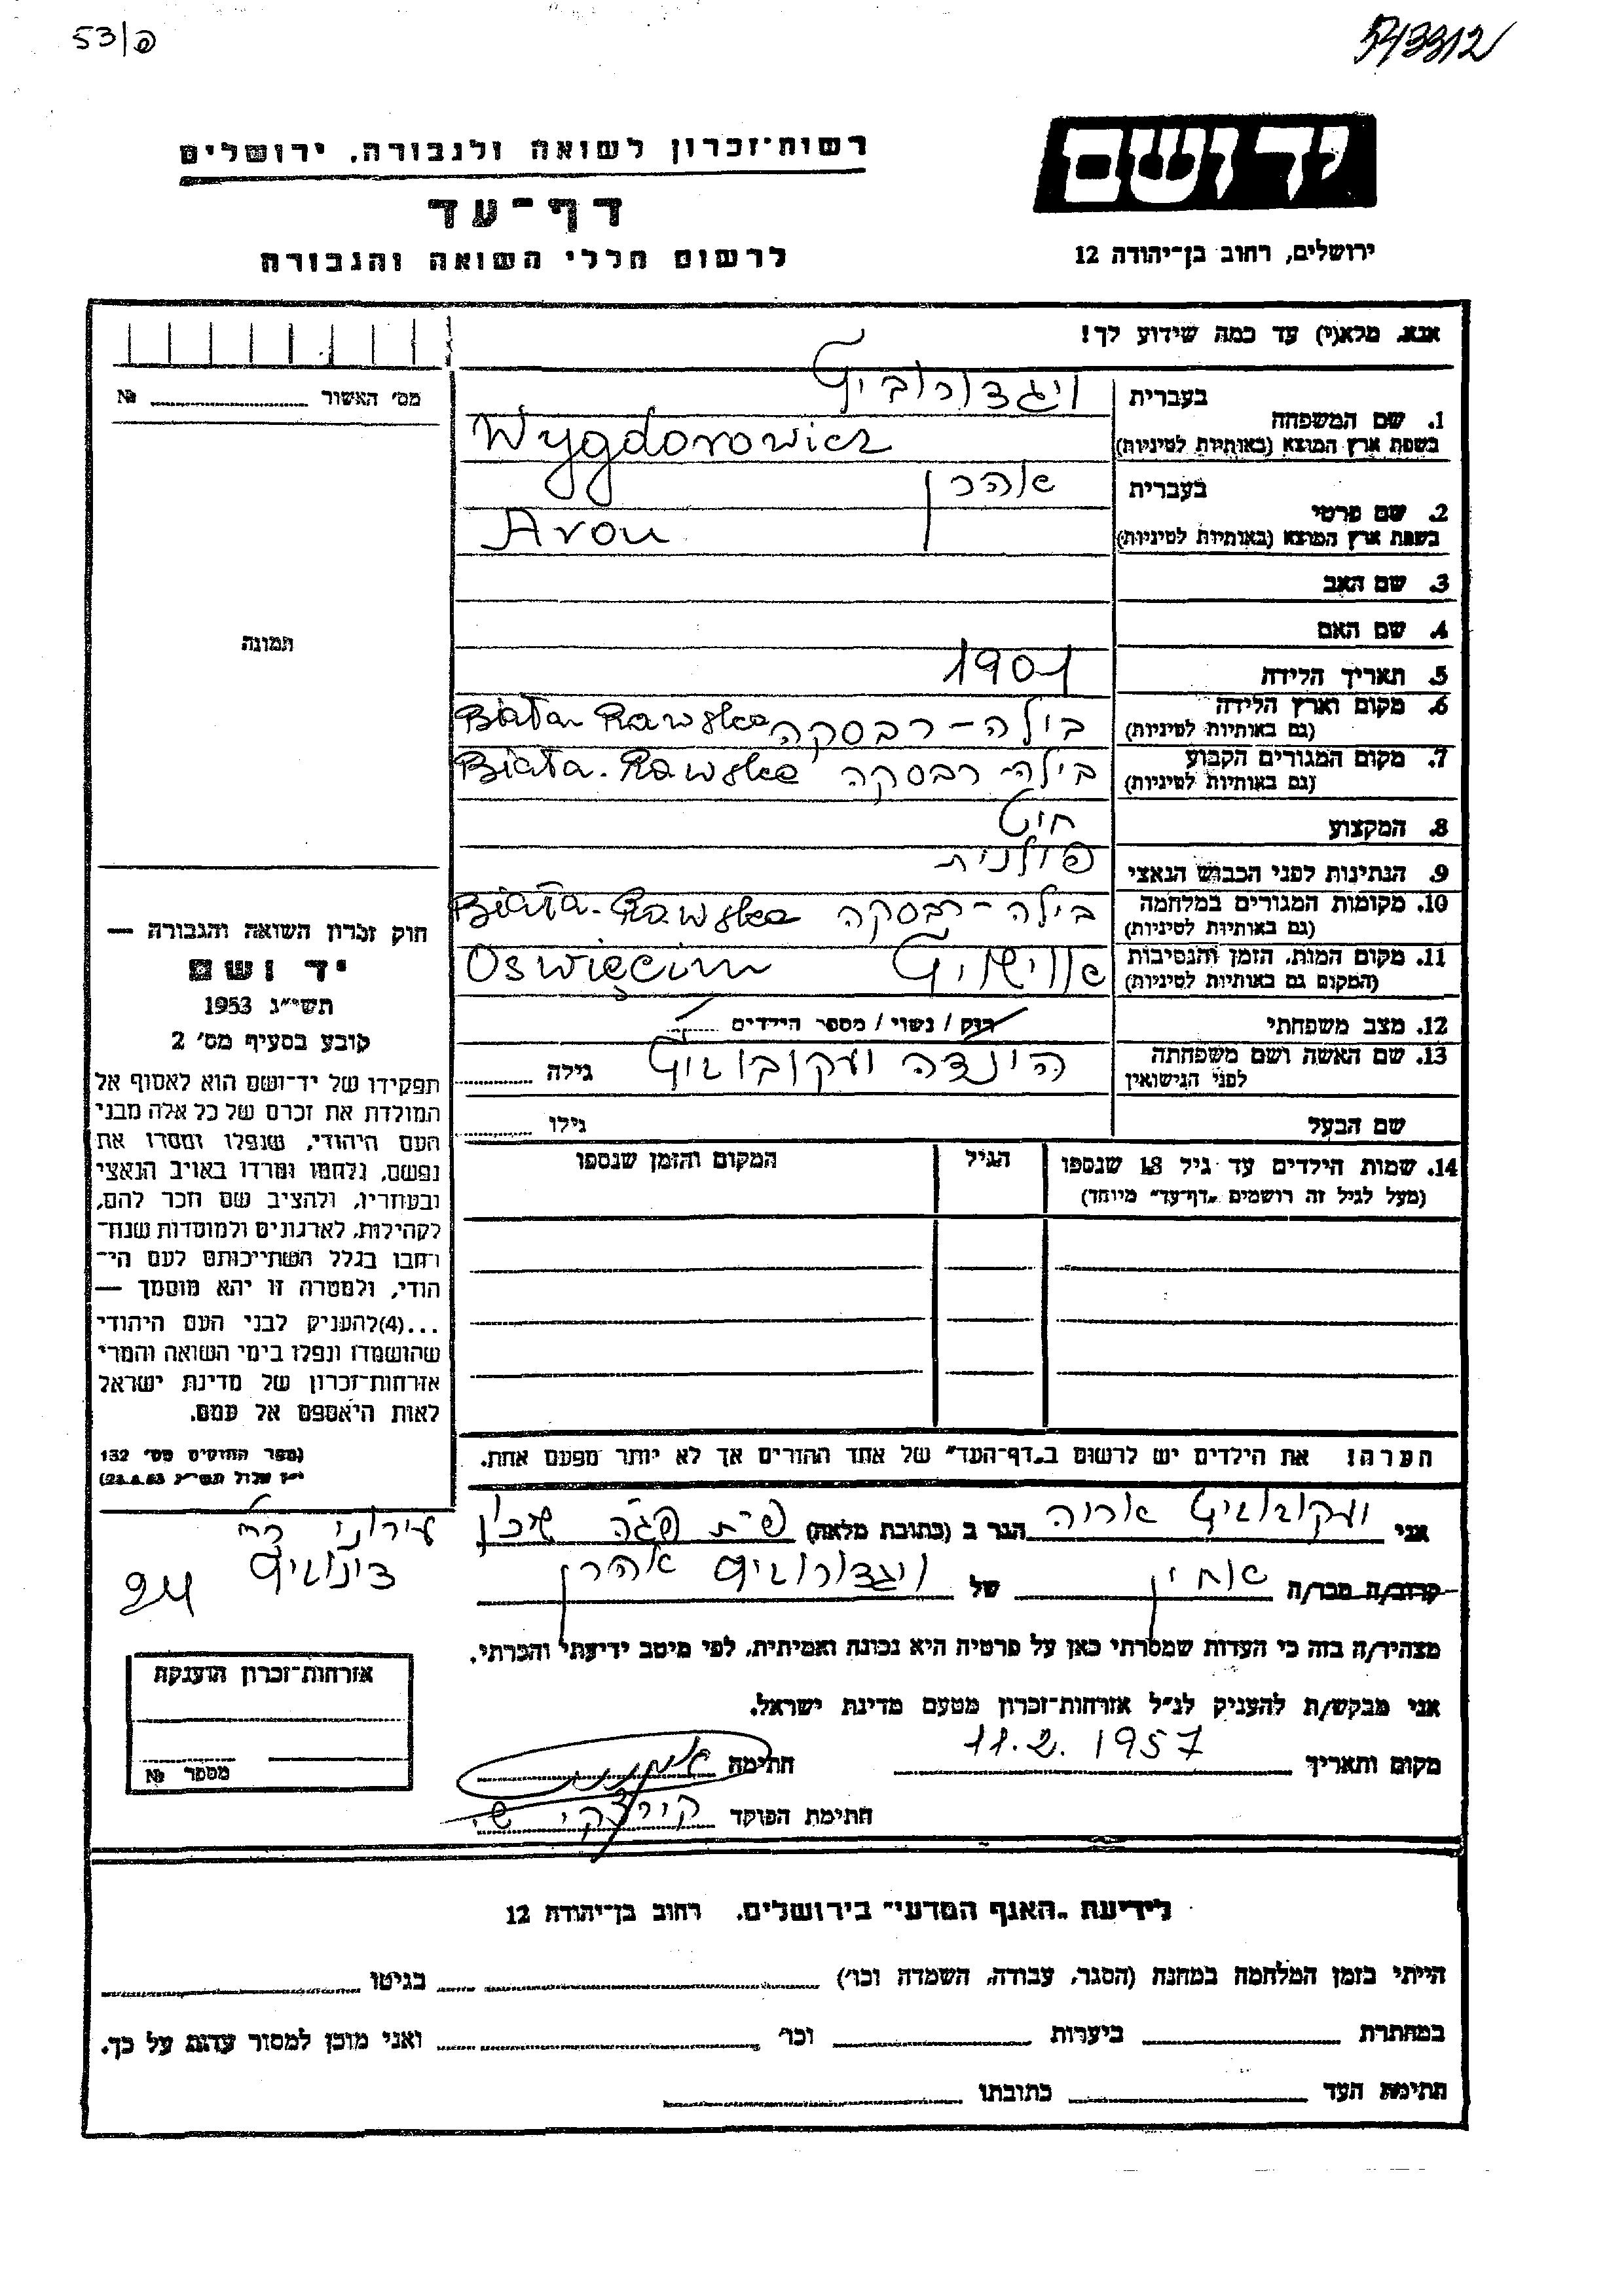 53/פ
543312
יד ושם
ירושלים, רחוב בן־יהודה 12
רשות־זכרון לשואה ולגבורה, ירושלים
דף־עד
לרשום חללי השואה והגבורה
אנא, מלא(י) עד כמה שידוע לך!
מס׳ האשור № 
1. שם המשפחה
בעברית
ויגדורוביץ
בשפת ארץ המוצא (באותיות לטיניות)
Wygdorowicz
2. שם פרטי
בעברית
אהרן
בשפת ארץ המוצא (באותיות לטיניות)
Aron
3. שם האב
4. שם האם
תמונה
5. תאריך הלידה 1901
6. מקום וארץ הלידה
(גם באותיות לטיניות)
בילה-רבסקה Biała Rawska
7. מקום המגורים הקבוע
(גם באותיות לטיניות)
בילה-רבסקה Biała-Rawska
8. המקצוע חיט
9. הנתינות לפני הכבוש הנאצי פולנית
10. מקומות המגורים במלחמה
(גם באותיות לטיניות)
בילה-רבסקה Biała-Rawska
11. מקום המות, הזמן והנסיבות
(המקום גם באותיות לטיניות)
אוישויץ Oswięcim
12. מצב משפחתי רוק / נשוי / מספר הילדים
13. שם האשה ושם משפחתה
לפני הנישואין
הינדה יעקובוביץ גילה
שם הבעל גילו
14. שמות הילדים עד גיל 18 שנספו
(מעל לגיל זה רושמים „דף־עד” מיוחד)
הגיל
המקום והזמן שנספו
הערה: את הילדים יש לרשום ב„דף־העד” של אחד ההורים אך לא יותר מפעם אחת.
חוק זכרון השואה והגבורה —
יד ושם
תשי״ג 1953
קובע בסעיף מס׳ 2
תפקידו של יד־ושם הוא לאסוף אל
המולדת את זכרם של כל אלה מבני
העם היהודי, שנפלו ומסרו את
נפשם, נלחמו ומרדו באויב הנאצי
ובעוזריו, ולהציב שם וזכר להם,
לקהילות, לארגונים ולמוסדות שנח־
רחבו בגלל השתייכותם לעם הי־
הודי, ולמטרה זו יהא מוסמך —
...(4)להעניק לבני העם היהודי
שהושמדו ונפלו בימי השואה והמרי
אזרחות־זכרון של מדינת ישראל
לאות היאספם אל עמם.
(ספר החוקים מס׳ 132
י״ז אלול תשי״ג 28.8.53)
אני יעקובוביץ אריה הגר ב (כתובת מלאה) פ״ת סגה שיכון
עירוני
24
קרוב/ה מכר/ה של ויגדורוביץ אהרן
מצהיר/ה בזה כי העדות שמסרתי כאן על פרטיה היא נכונה ואמיתית, לפי מיטב ידיעתי והכרתי.
אני מבקש/ת להעניק לנ״ל אזרחות־זכרון מטעם מדינת ישראל.
מקום ותאריך 11.2.1957 חתימה
חתימת הפוקד
אזרחות־זכרון הוענקה
מספר №
לידיעת „האגף המדעי” בירושלים, רחוב בן־יהודה 12
הייתי בזמן המלחמה במחנה (הסגר, עבודה, השמדה וכו׳) בגיטו
במחתרת ביערות וכו׳ ואני מוכן למסור עדות על כך.
חתימת העד כתובתו